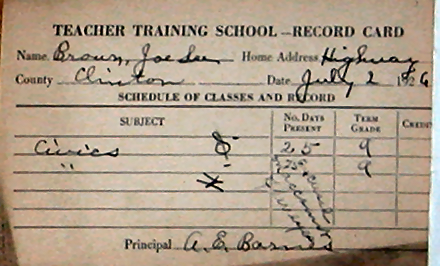 TEACHER TRAINING SCHOOL—RECORD CARD
Name Brown, Joe Lee Home Address Highway
County Clinton Date July 2 1926
SCHEDULE OF CLASSES AND RECORD
SUBJECT No. Days Present Term Grade Credit
Civics 25 9
" 25 9
Principal A. E. Barnes